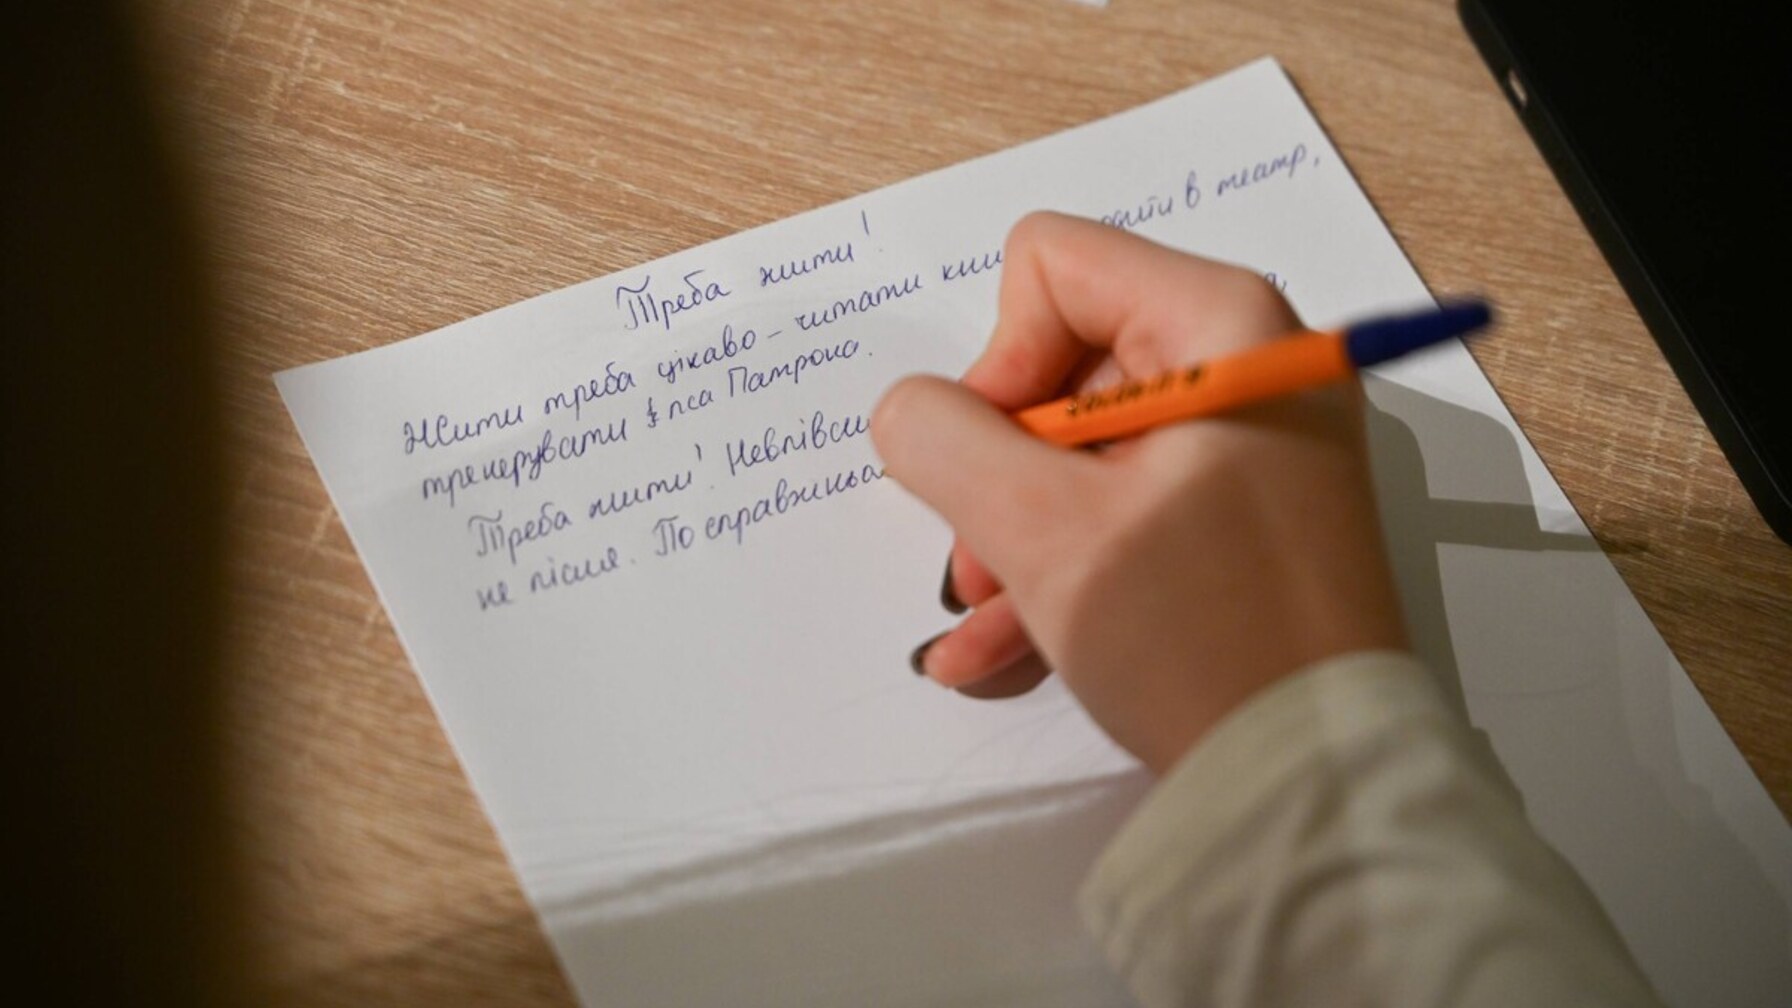 Треба жити!
Жити треба цікаво – читати кни одити в театр,
тренерувати пса Патрона. а,
Треба жити! Невпівси
не після. По справжньо